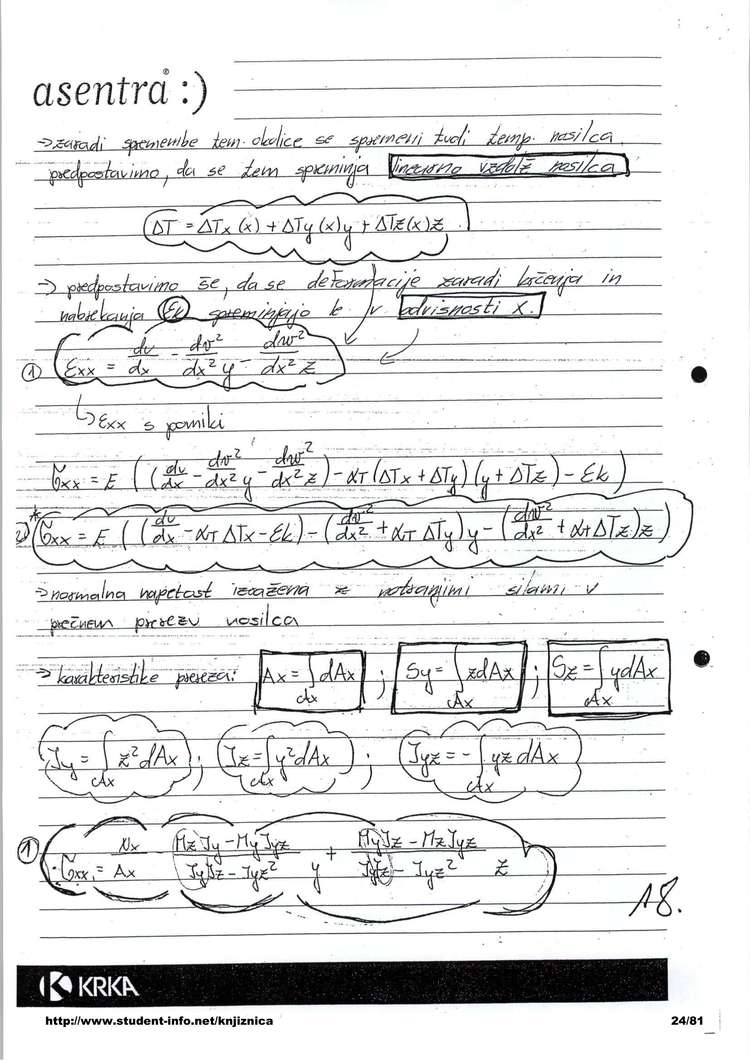 asentra® :)
→ zaradi spremembe tem. okolice se spremeni tudi temp. nosilca.
predpostavimo, da se tem spreminja linearno vzdolž nosilca
ΔT = ΔTx(x) + ΔTy(x)y + ΔTz(x)z
→ predpostavimo še, da se deformacije zaradi krčenja in
nabrekanja (εk) spreminjajo le v odvisnosti x.
① εxx = du/dx - dv²/dx² y - dw²/dx² z
↳ εxx s pomiki
σxx = E ((du/dx - dv²/dx² y - dw²/dx² z) - αT (ΔTx + ΔTy) (y + ΔTz) - εk)
2) * σxx = E ((du/dx - αT ΔTx - εk) - (dv²/dx² + αT ΔTy)y - (dw²/dx² + αT ΔTz)z)
→ normalna napetost izražena z notranjimi silami v
prečnem prerezu nosilca
→ karakteristike prereza: Ax = ∫Ax dAx ; Sy = ∫Ax zdAx ; Sz = ∫Ax ydAx
Iy = ∫Ax z²dAx ; Iz = ∫Ax y²dAx ; Iyz = - ∫Ax yz dAx
① σxx = Nx/Ax - (MzIy - MyIyz)/(IyIz - Iyz²) y + (MyIz - MzIyz)/(IyIz - Iyz²) z
18.
KRKA
http://www.student-info.net/knjiznica 24/81